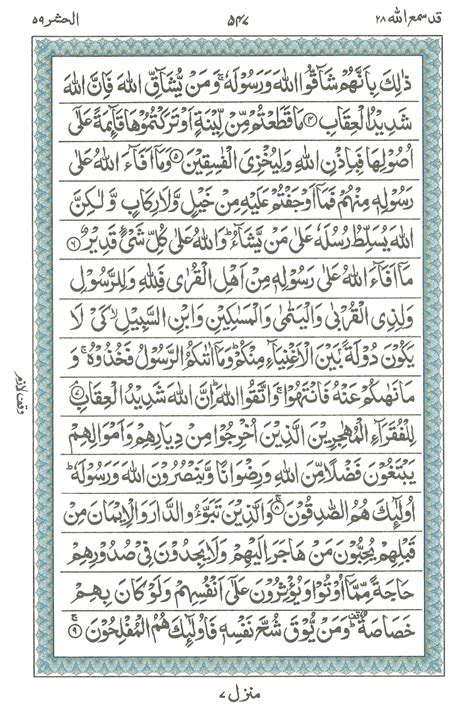 قد سمع الله ٢٨ ٥٤٧ الحشر ٥٩
ذٰلِكَ بِاَنَّهُمْ شَآقُّوا اللهَ وَرَسُوْلَهٗ ۚ وَمَنْ يُّشَآقِّ اللهَ فَاِنَّ اللهَ
شَدِيْدُ الْعِقَابِ ۴ مَا قَطَعْتُمْ مِّنْ لِّيْنَةٍ اَوْ تَرَكْتُمُوْهَا قَآئِمَةً عَلٰٓى
اُصُوْلِهَا فَبِاِذْنِ اللهِ وَلِيُخْزِىَ الْفٰسِقِيْنَ ۵ وَمَآ اَفَآءَ اللهُ عَلٰى
رَسُوْلِهٖ مِنْهُمْ فَمَآ اَوْجَفْتُمْ عَلَيْهِ مِنْ خَيْلٍ وَّلَا رِكَابٍ وَّلٰكِنَّ
اللهَ يُسَلِّطُ رُسُلَهٗ عَلٰى مَنْ يَّشَآءُ ؕ وَاللهُ عَلٰى كُلِّ شَىْءٍ قَدِيْرٌ ۶
مَآ اَفَآءَ اللهُ عَلٰى رَسُوْلِهٖ مِنْ اَهْلِ الْقُرٰى فَلِلّٰهِ وَلِلرَّسُوْلِ
وَلِذِى الْقُرْبٰى وَالْيَتٰمٰى وَالْمَسٰكِيْنِ وَابْنِ السَّبِيْلِ ۙ كَىْ لَا
يَكُوْنَ دُوْلَةًۢ بَيْنَ الْاَغْنِيَآءِ مِنْكُمْ ؕ وَمَآ اٰتٰىكُمُ الرَّسُوْلُ فَخُذُوْهُ ۚ وَ
مَا نَهٰىكُمْ عَنْهُ فَانْتَهُوْا ۚ وَاتَّقُوا اللهَ ؕ اِنَّ اللهَ شَدِيْدُ الْعِقَابِ ۷
وقف لازم
لِلْفُقَرَآءِ الْمُهٰجِرِيْنَ الَّذِيْنَ اُخْرِجُوْا مِنْ دِيَارِهِمْ وَاَمْوَالِهِمْ
يَبْتَغُوْنَ فَضْلًا مِّنَ اللهِ وَرِضْوَانًا وَّيَنْصُرُوْنَ اللهَ وَرَسُوْلَهٗ ؕ
اُولٰٓئِكَ هُمُ الصّٰدِقُوْنَ ۸ وَالَّذِيْنَ تَبَوَّؤُ الدَّارَ وَالْاِيْمَانَ مِنْ
قَبْلِهِمْ يُحِبُّوْنَ مَنْ هَاجَرَ اِلَيْهِمْ وَلَا يَجِدُوْنَ فِىْ صُدُوْرِهِمْ
حَاجَةً مِّمَّآ اُوْتُوْا وَيُؤْثِرُوْنَ عَلٰٓى اَنْفُسِهِمْ وَلَوْ كَانَ بِهِمْ
خَصَاصَةٌ ؕ وَمَنْ يُّوْقَ شُحَّ نَفْسِهٖ فَاُولٰٓئِكَ هُمُ الْمُفْلِحُوْنَ ۚ ۹
منزل ۷